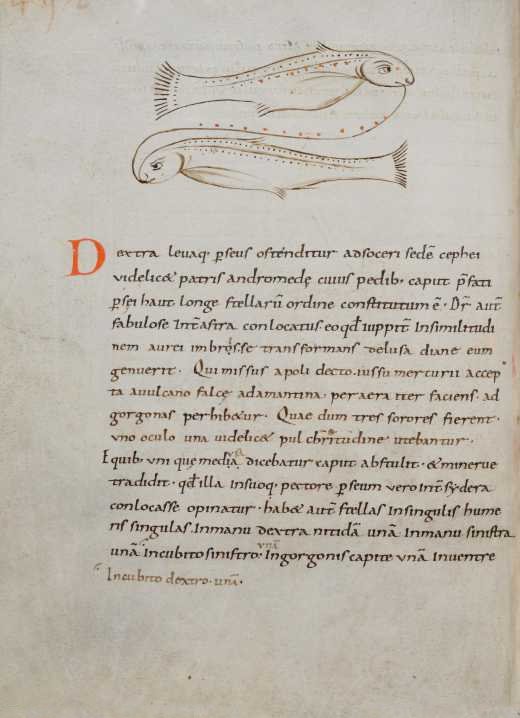 Dextra levaq· ꝑseus ostenditur ad soceri sedē cephei
videlic& patris andromedę cuius pedib· caput p̄fati
ꝑsei haut longe stellarū ordine constitutum ē· Dr̄ aut̄
fabulose int̄ astra conlocatus eo qd̄ iuppit̄ insimilitudi
nem aurei imbris se transformans delusa diane eum
genuerit· Qui missus a polidecto· iussu mercurii accep
ta a vulcano falce adamantina· per aera iter faciens· ad
gorgonas perhib&ur· Quae dum tres sorores fierent·
uno oculo una videlic& pulchritudine utebantur·
Equib· uni quę media dicebatur caput abstulit· & minerve
tradidit· qd̄ illa insuo q· pectore ꝑseum vero int̄ sydera
conlocasse opinatur· hab& aut̄ stellas insingulis hume
ris singulas· Inmanu dextra nitidā unā Inmanu sinistra
unā· Incubito sinistro· unā Ingorgonis capite unā Inventre
Incubito dextro· unā·